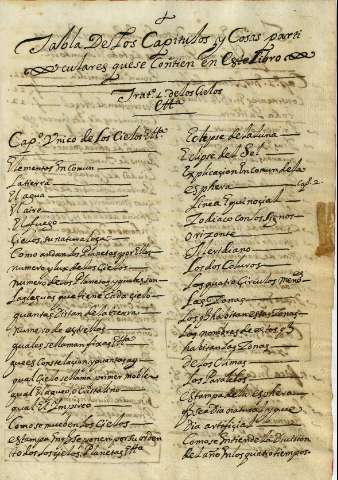 Tabla De Los Capitulos, y Cosas parti
culares que se Contien en Este Libro
Trat.º 1. de los Cielos
Ettª
Cap.º Vnico de los Cielos Ettª
Elementos En Comun
La tierra
El agua
El aire
El fuego
Cielos, su naturaleza
Como andan los Planetas por ellos
numero y luz de los Cielos
numero de los Planetas y quales son
Las leguas que tiene Cada cielo
quantas Distan de la tierra
numero de estrellas
quales se llaman fixas Ettª
que es Constelacion, y quantas ay
qual Cielo se llama primer moble
qual El aqueo, o Cristalino
qual El Impireo
Como se mueben los Cielos
estampa En q se ponen por su orden
todos los cielos, Planetas Ettª
Eclipse de la Luna
Eclipse del Sol
Explicacion En Comun de la
Esphera Cap. 2.
Linea Equinoçial
Zodiaco Con los signos
Orizonte
Meridiano
Los dos Coluros
Los quatro Circulos menores
Las Zonas
Los q habitan estas Zonas
Los nombres de estos q
habitan las Zonas
De los Climas
Los Paralelos
Estampa de la esphera
q sea dia natural y que
Dia artificial
Como se Entiende la Division
de el año En los quatro tiempos